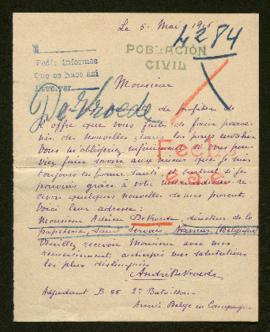 Le 5. Mai
4284
POBLACIÓN
CIVIL
Pedir informes
Que se hace así
Monsieur
De Vroede
l'offre que vous faites de faire parvenir
de nouvelles dans les pays envahis
Vous m'obligeriez infiniment si vous
faire savoir aux miens que je suis
toujours en bonne santé et surtout si je
pouvais grâce à votre
quelques nouvelles de mes parents
Voici leur adresse:
Monsieur Adrien De Vroede, directeur de la
papeterie, Saint Servais Namur (Belgique)
Veuillez recevoir Monsieur avec mes
remerciements anticipés mes salutations
les plus distinguées
André De Vroede
Adjudant B 55 2e Bataillon
Armée Belge en Campagne